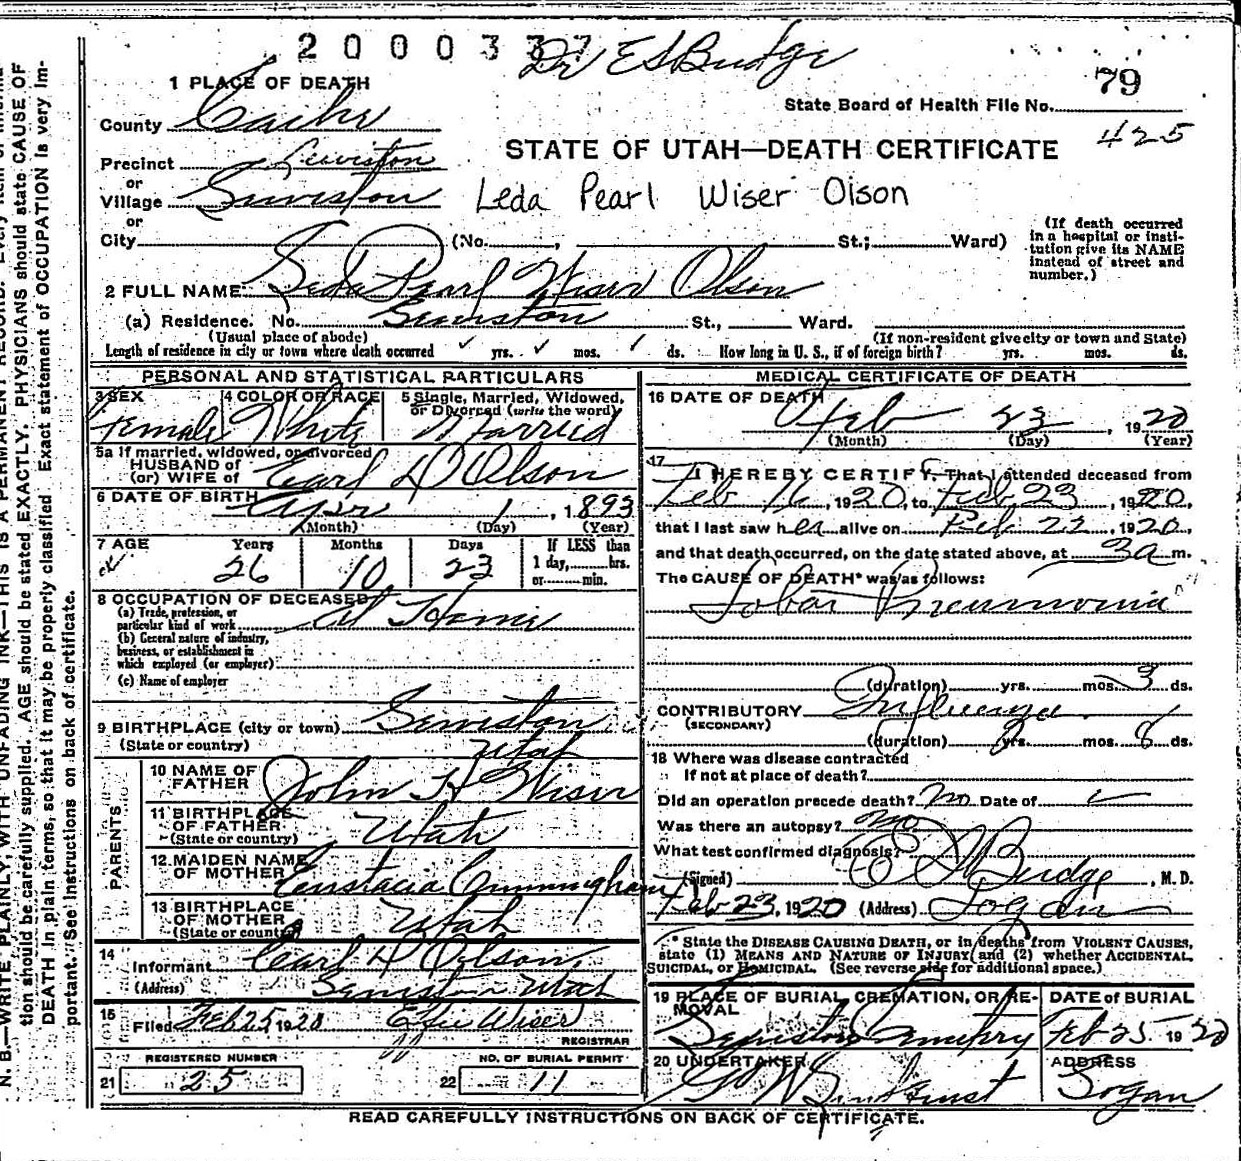 2000337
Dr E S Budge
79
1 PLACE OF DEATH
State Board of Health File No.
425
County Cache
STATE OF UTAH—DEATH CERTIFICATE
Precinct Lewiston
or
Village Lewiston
Leda Pearl Wiser Olson
or
City (No. , St.; Ward)
(If death occurred in a hospital or insti-
tution give its NAME
instead of street and
number.)
2 FULL NAME Leda Pearl Wiser Olson
(a) Residence. No. Lewiston St., Ward.
(Usual place of abode) (If non-resident give city or town and State)
Length of residence in city or town where death occurred yrs. mos. ds. How long in U. S., if of foreign birth? yrs. mos. ds.
PERSONAL AND STATISTICAL PARTICULARS
3 SEX
Female
4 COLOR OR RACE
White
5 Single, Married, Widowed,
or Divorced (write the word)
Married
5a If married, widowed, or divorced
HUSBAND of
(or) WIFE of Earl D Olson
6 DATE OF BIRTH
Apr 1, 1893
(Month) (Day) (Year)
7 AGE Years Months Days
26 10 23
If LESS than
1 day, hrs.
or min.
8 OCCUPATION OF DECEASED
(a) Trade, profession, or
particular kind of work At Home
(b) General nature of industry,
business, or establishment in
which employed (or employer)
(c) Name of employer
9 BIRTHPLACE (city or town) Lewiston
(State or country) Utah
PARENTS
10 NAME OF
FATHER John H Wiser
11 BIRTHPLACE
OF FATHER
(State or country) Utah
12 MAIDEN NAME
OF MOTHER Eustacia Cunningham
13 BIRTHPLACE
OF MOTHER
(State or country) Utah
14
Informant Earl D Olson
(Address) Lewiston Utah
15
Filed Feb 25 1920 Effie Wiser
REGISTRAR
REGISTERED NUMBER
21 25
NO. OF BURIAL PERMIT
22 11
MEDICAL CERTIFICATE OF DEATH
16 DATE OF DEATH
Feb 23, 1920
(Month) (Day) (Year)
17
I HEREBY CERTIFY, That I attended deceased from
Feb 16, 1920, to Feb 23, 1920,
that I last saw her alive on Feb 22, 1920,
and that death occurred, on the date stated above, at 3a m.
The CAUSE OF DEATH* was as follows:
Lobar Pneumonia
(duration) yrs. mos. 3 ds.
CONTRIBUTORY Influenza
(SECONDARY)
(duration) yrs. mos. 8 ds.
18 Where was disease contracted
If not at place of death?
Did an operation precede death? no Date of
Was there an autopsy? no
What test confirmed diagnosis?
(Signed) E S Budge, M. D.
Feb 23, 1920 (Address) Logan
* State the DISEASE CAUSING DEATH, or in deaths from VIOLENT CAUSES,
state (1) MEANS AND NATURE OF INJURY and (2) whether ACCIDENTAL,
SUICIDAL, or HOMICIDAL. (See reverse side for additional space.)
19 PLACE OF BURIAL, CREMATION, OR RE-
MOVAL
Lewiston Cemetery
DATE of BURIAL
Feb 25 1920
20 UNDERTAKER
G W Lindquist
ADDRESS
Logan
READ CAREFULLY INSTRUCTIONS ON BACK OF CERTIFICATE.
N. B.—WRITE PLAINLY, WITH UNFADING INK—THIS IS A PERMANENT RECORD. Every item of
tion should be carefully supplied. AGE should be stated EXACTLY. PHYSICIANS should state CAUSE OF
DEATH in plain terms, so that it may be properly classified. Exact statement of OCCUPATION is very im-
portant. See instructions on back of certificate.